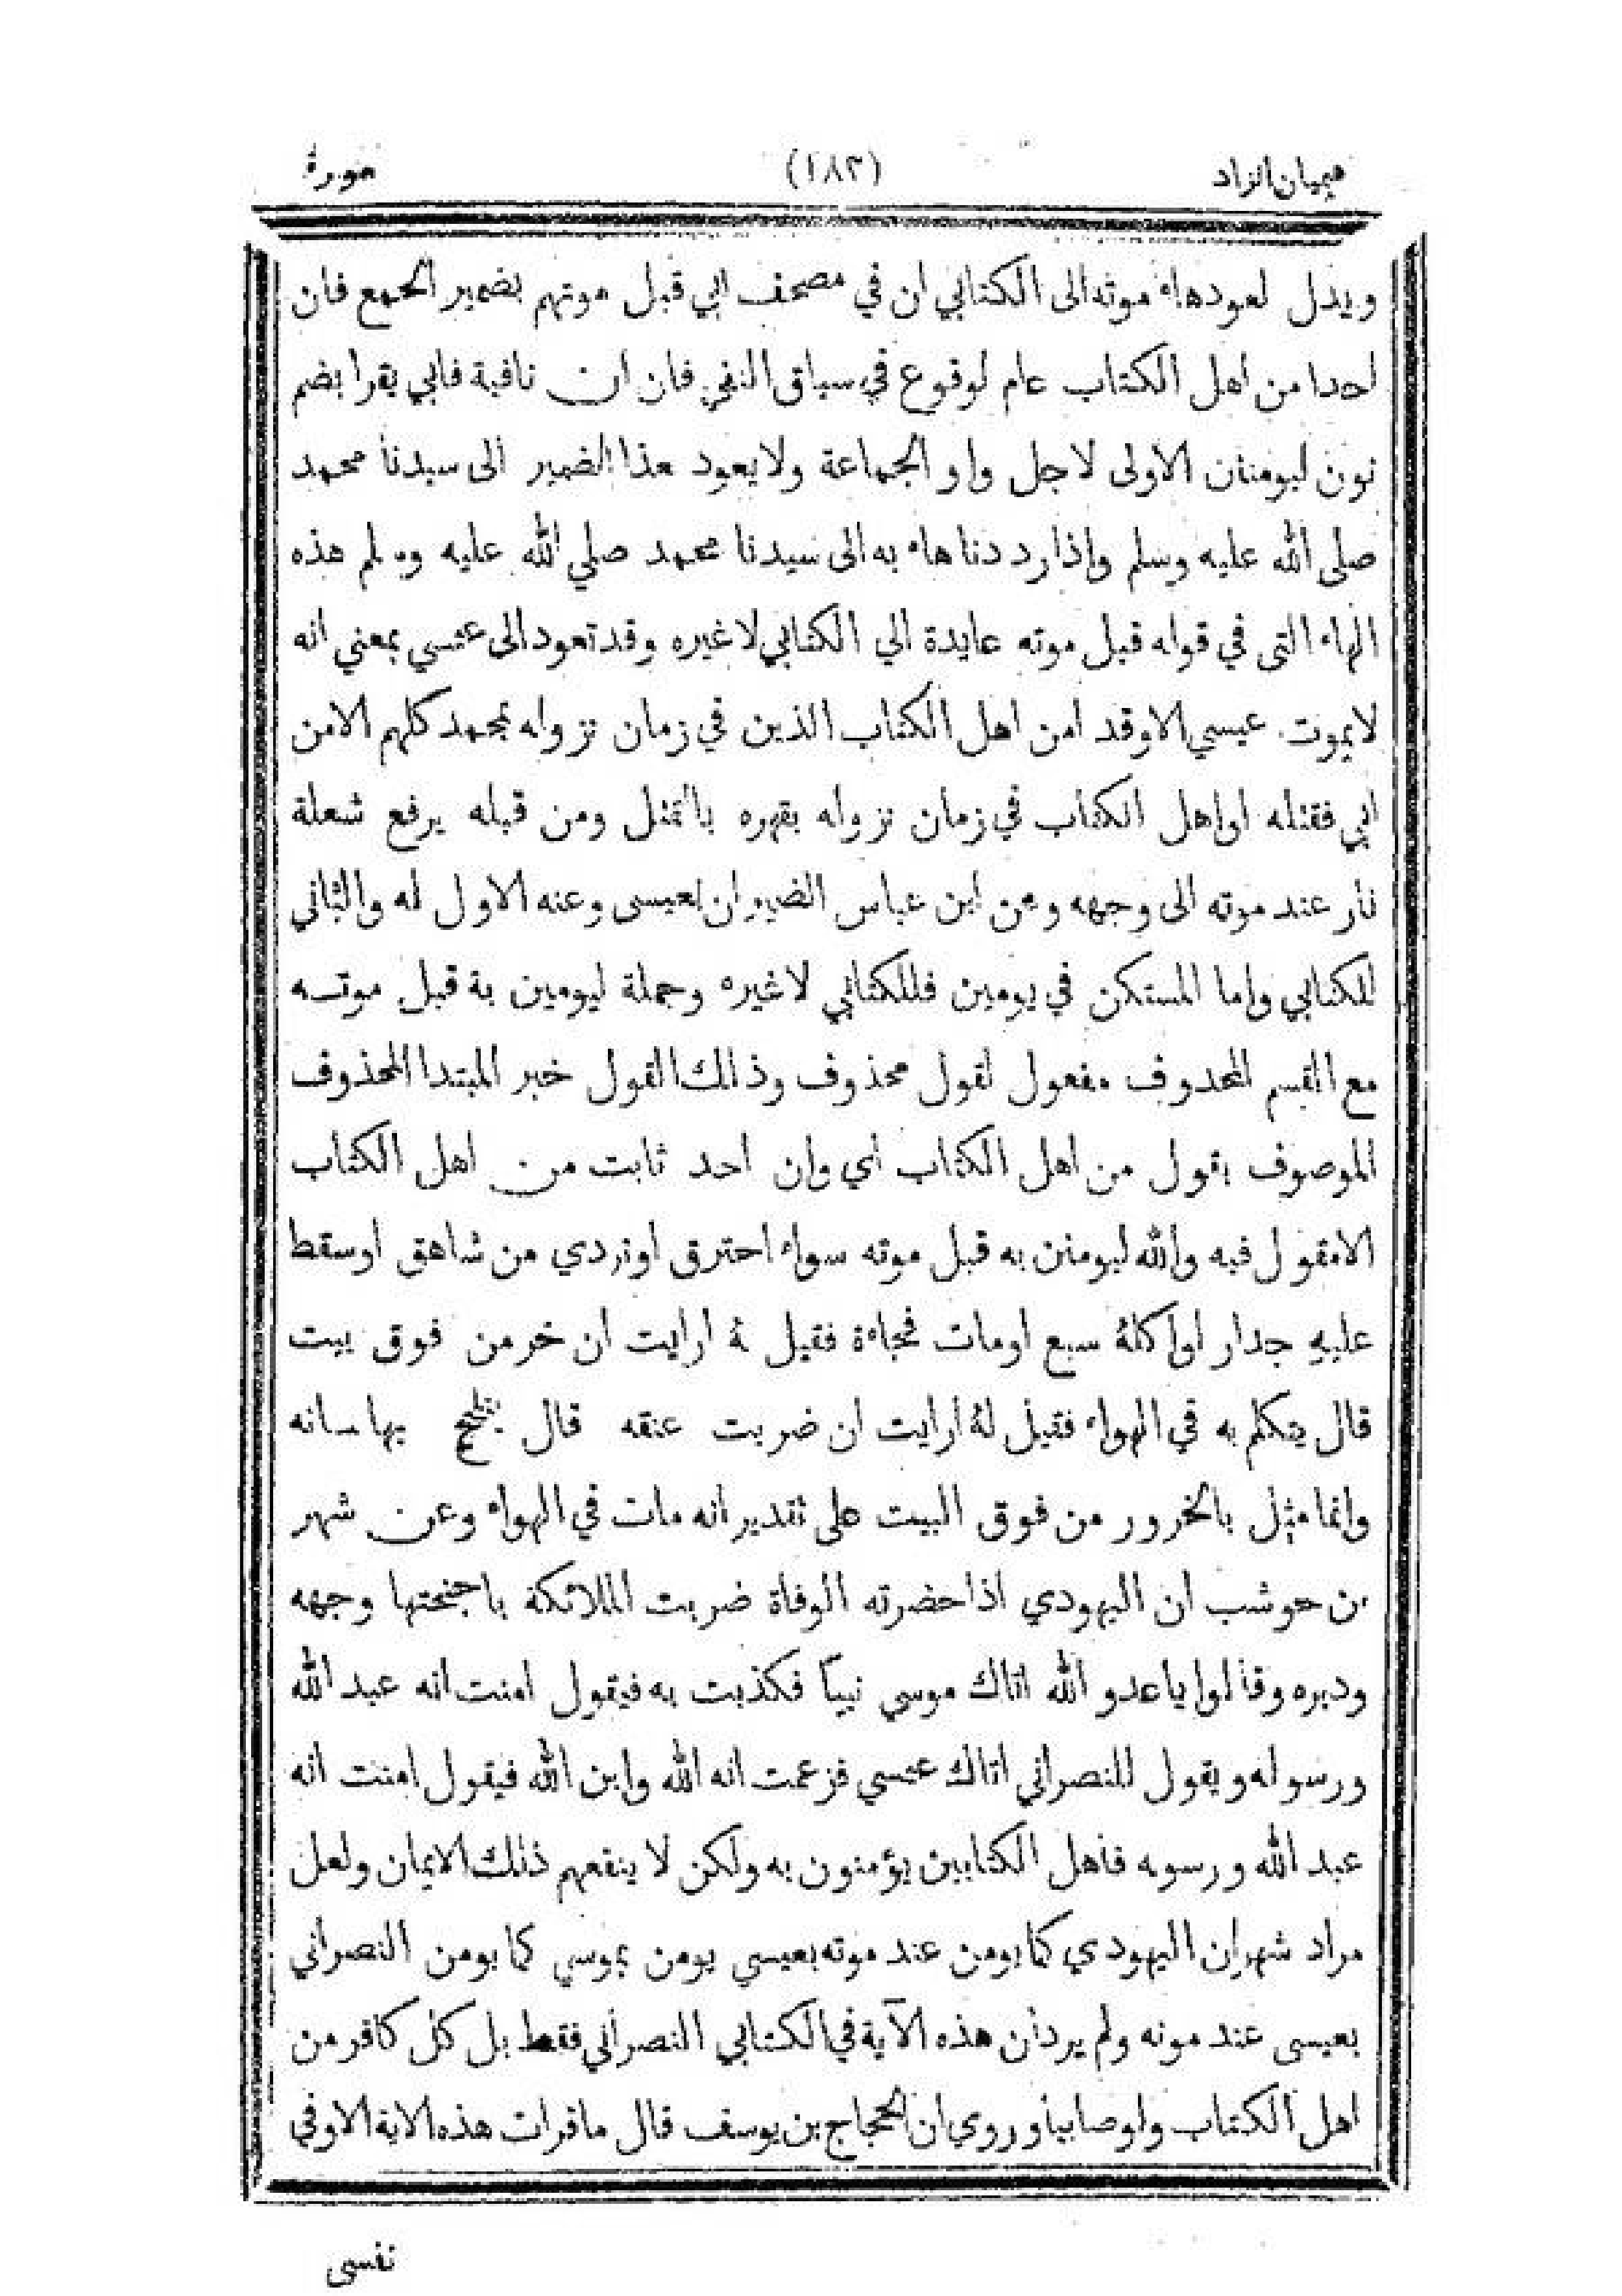 هيميان الزاد (١٨٣) سورة
ويدل لعودهاء موته الى الكتابي ان في مصحف ابي قبل موتهم بضمير الجمع فان
احدا من اهل الكتاب عام لوقوع في سياق النفي فان ان نافية فابي يقرا بضم
نون ليومنن الاولى لاجل واو الجماعة ولا يعود هذا الضمير الى سيدنا محمد
صلى الله عليه وسلم وإذا رددنا هاء به الى سيدنا محمد صلي الله عليه وسلم هذه
الهاء التى في قوله قبل موته عايدة الي الكتابي لا غيره وقد تعود الى عيسي بمعني انه
لا يموت عيسي الا وقد امن اهل الكتاب الذين في زمان نزوله بمحمد كلهم الا من
ابي فقتله او اهل الكتاب في زمان نزوله بقهره بالقتل ومن قبله يرفع شعلة
نار عند موته الى وجهه وعن ابن عباس الضميران لعيسى وعنه الاول له والثاني
للكتابي واما المستكن في يومين فللكتابي لا غيره وجملة ليومين به قبل موته
مع القسم المحدوف مفعول لقول محذوف وذلك القول خبر المبتدا المحذوف
الموصوف بقول من اهل الكتاب أي وان احد ثابت من اهل الكتاب
الا مقول فيه والله ليومنن به قبل موته سواء احترق او تردي من شاهق او سقط
عليه جدار او اكلهُ سبع او مات فجاءة فقيل لهُ ارايت ان خر من فوق بيت
قال يتكلم به في الهواء فقيل لهُ أرايت ان ضربت عنقه قال يتلجلج بها لسانه
وانما مثل بالخرور من فوق البيت على تقدير انه مات في الهواء وعن شهر
بن حوشب ان اليهودي اذا حضرته الوفاة ضربت الملائكة باجنحتها وجهه
ودبره وقالوا يا عدو الله اتاك موسي نبياً فكذبت به فيقول امنت انه عبد الله
ورسوله ويقول للنصراني اتاك عيسي فزعمت انه الله وابن الله فيقول امنت انه
عبد الله ورسوله فأهل الكتابين يؤمنون به ولكن لا ينفعهم ذلك الايمان ولعل
مراد شهران اليهودي كما يومن عند موته بعيسي يومن بموسي كما يومن النصراني
بعيسى عند موته ولم يرد ان هذه الآية في الكتابي النصراني فقط بل كل كافر من
اهل الكتاب ولو صابيا وروي ان الحجاج بن يوسف قال ما قرات هذه الاية الا وفي
نفسى